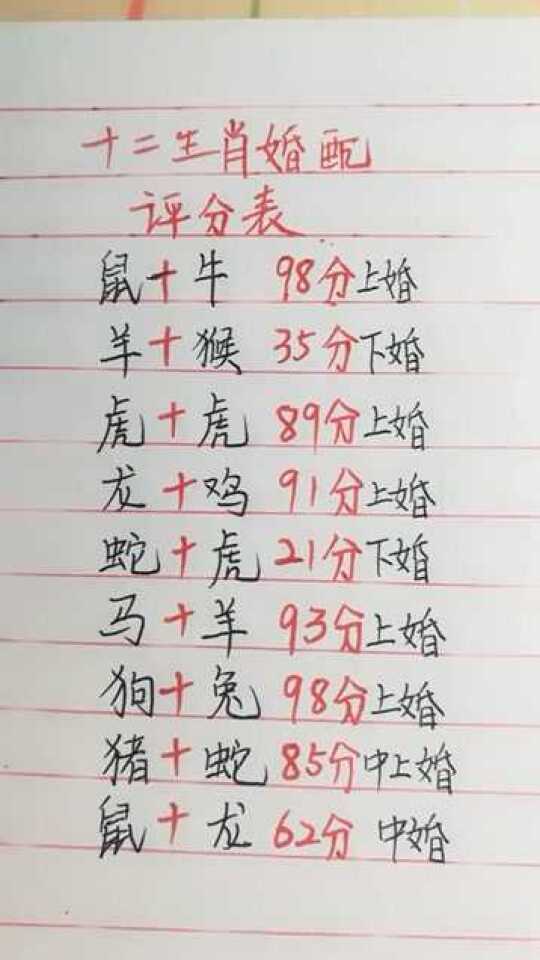 十二生肖婚配
评分表
鼠+牛 98分上婚
羊+猴 35分下婚
虎+虎 89分上婚
龙+鸡 91分上婚
蛇+虎 21分下婚
马+羊 93分上婚
狗+兔 98分上婚
猪+蛇 85分中上婚
鼠+龙 62分 中婚